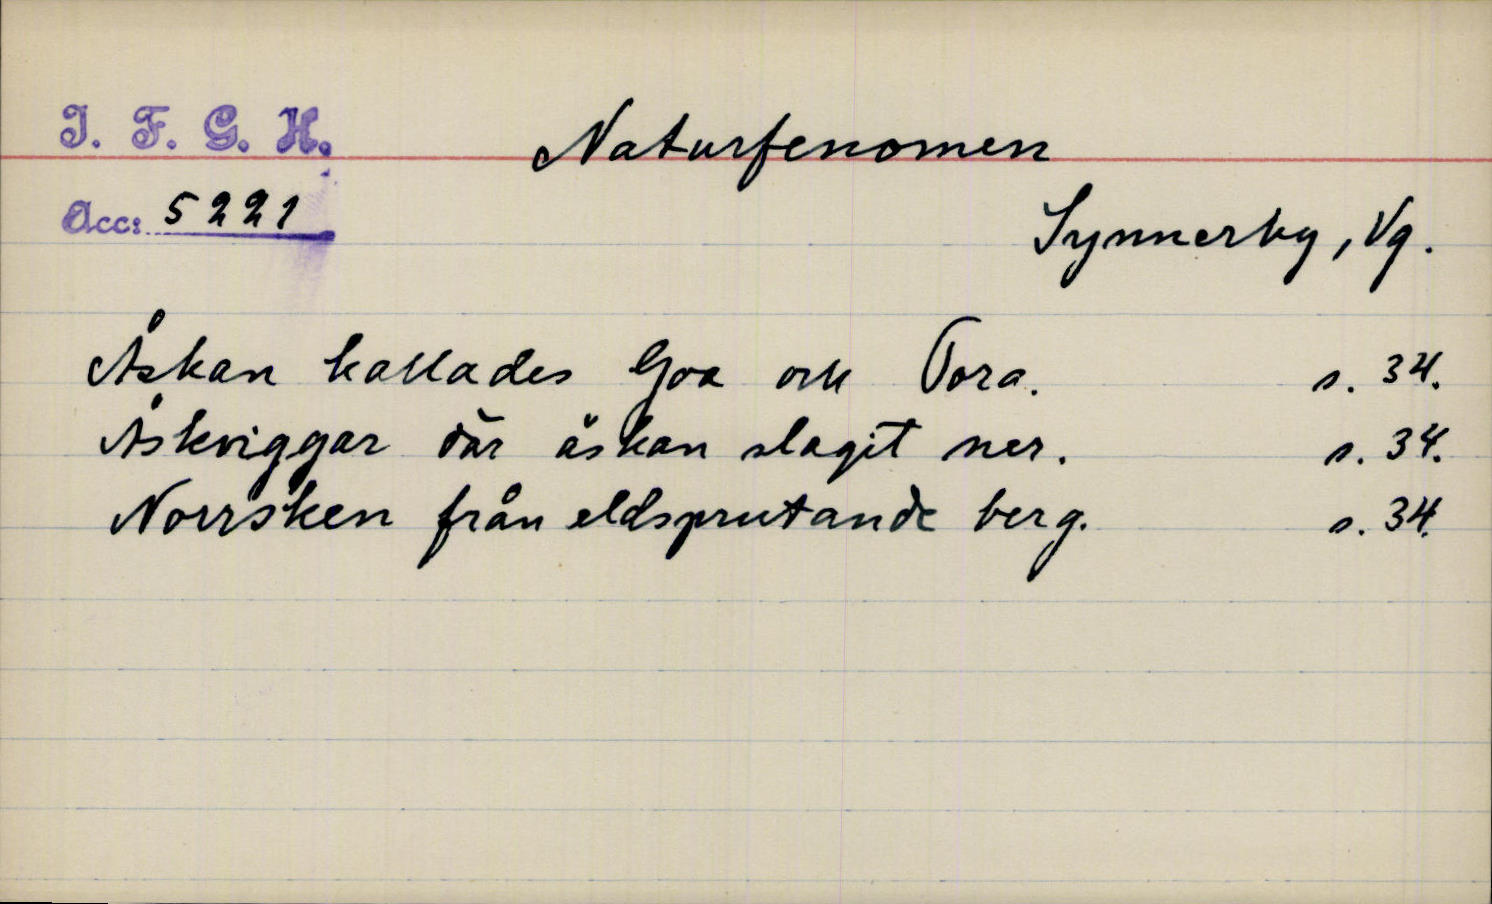 I. F. G. H.
Naturfenomen
Acc: 5221
Synnerby, Vg.
Åskan kallades Goa och Tora. s. 34.
Åskviggar där åskan slagit ner. s. 34.
Norrsken från eldsprutande berg. s. 34.